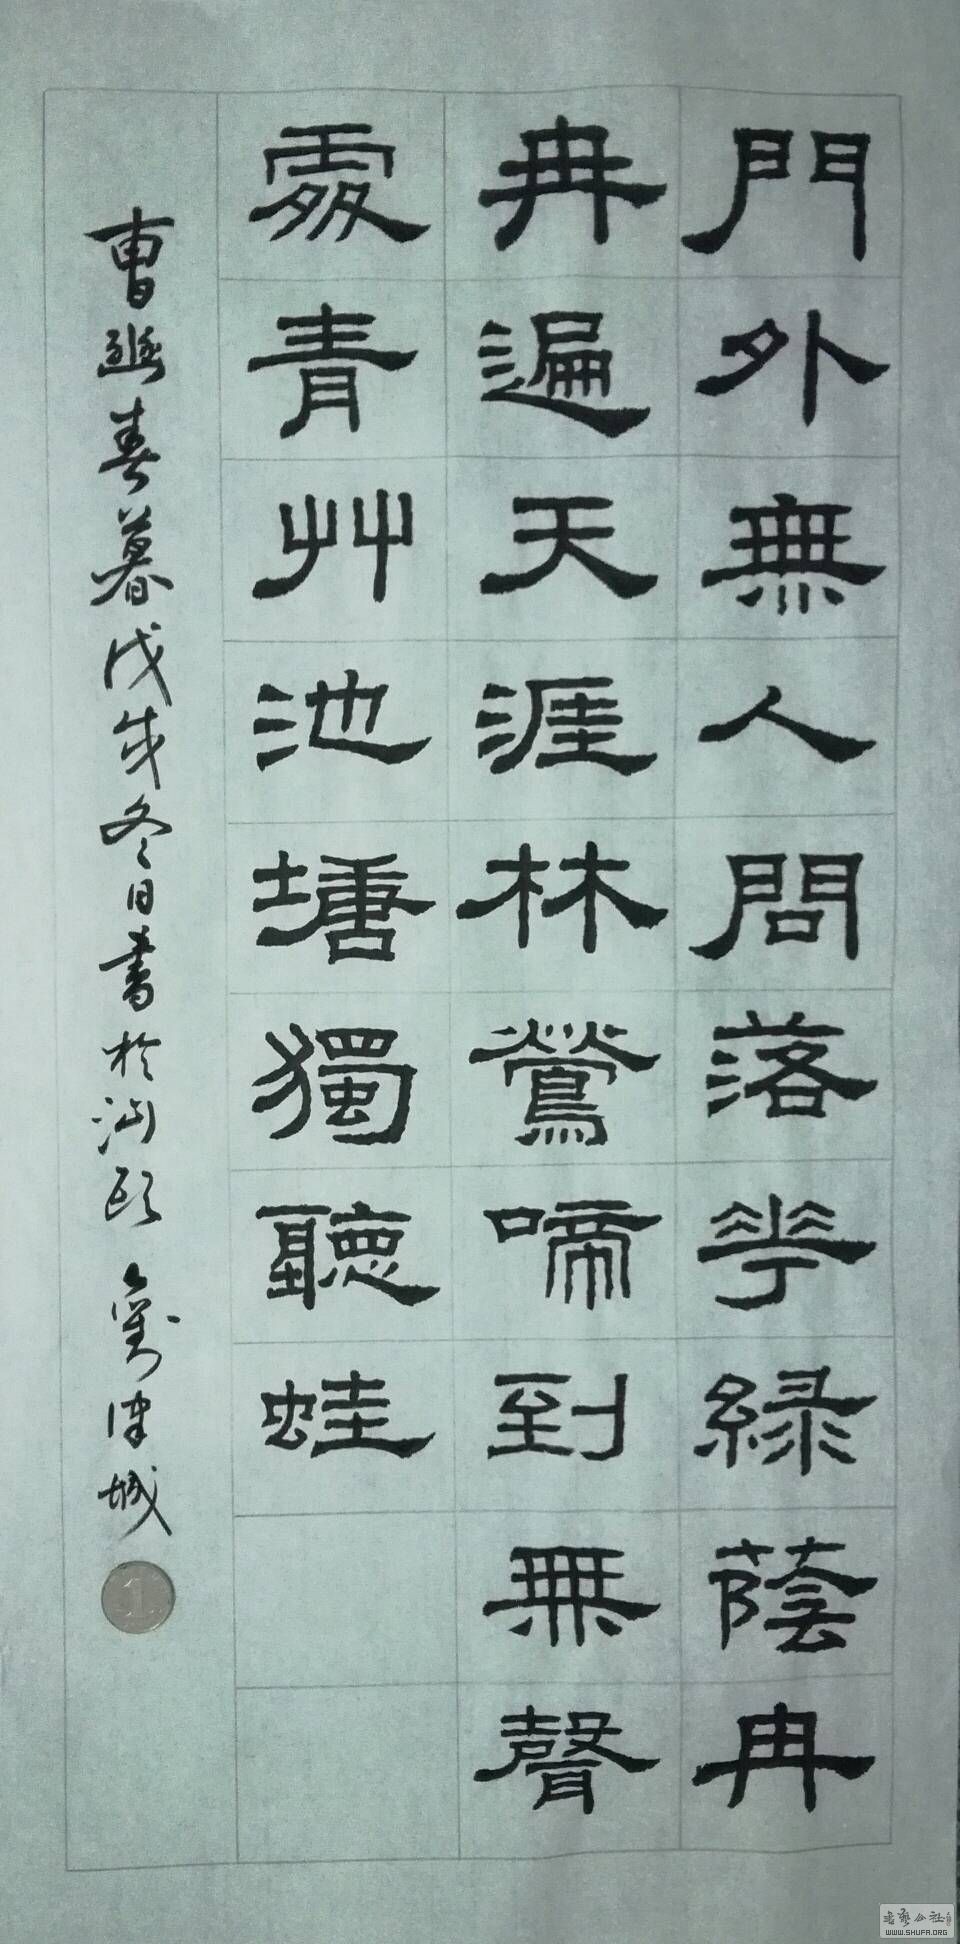 門外無人問落花綠蔭冉
冉遍天涯林鶯啼到無聲
處青艸池塘獨聽蛙
曹豳春暮戊戌冬日書於汕頭 城
1
书艺公社
WWW.SHUFA.ORG